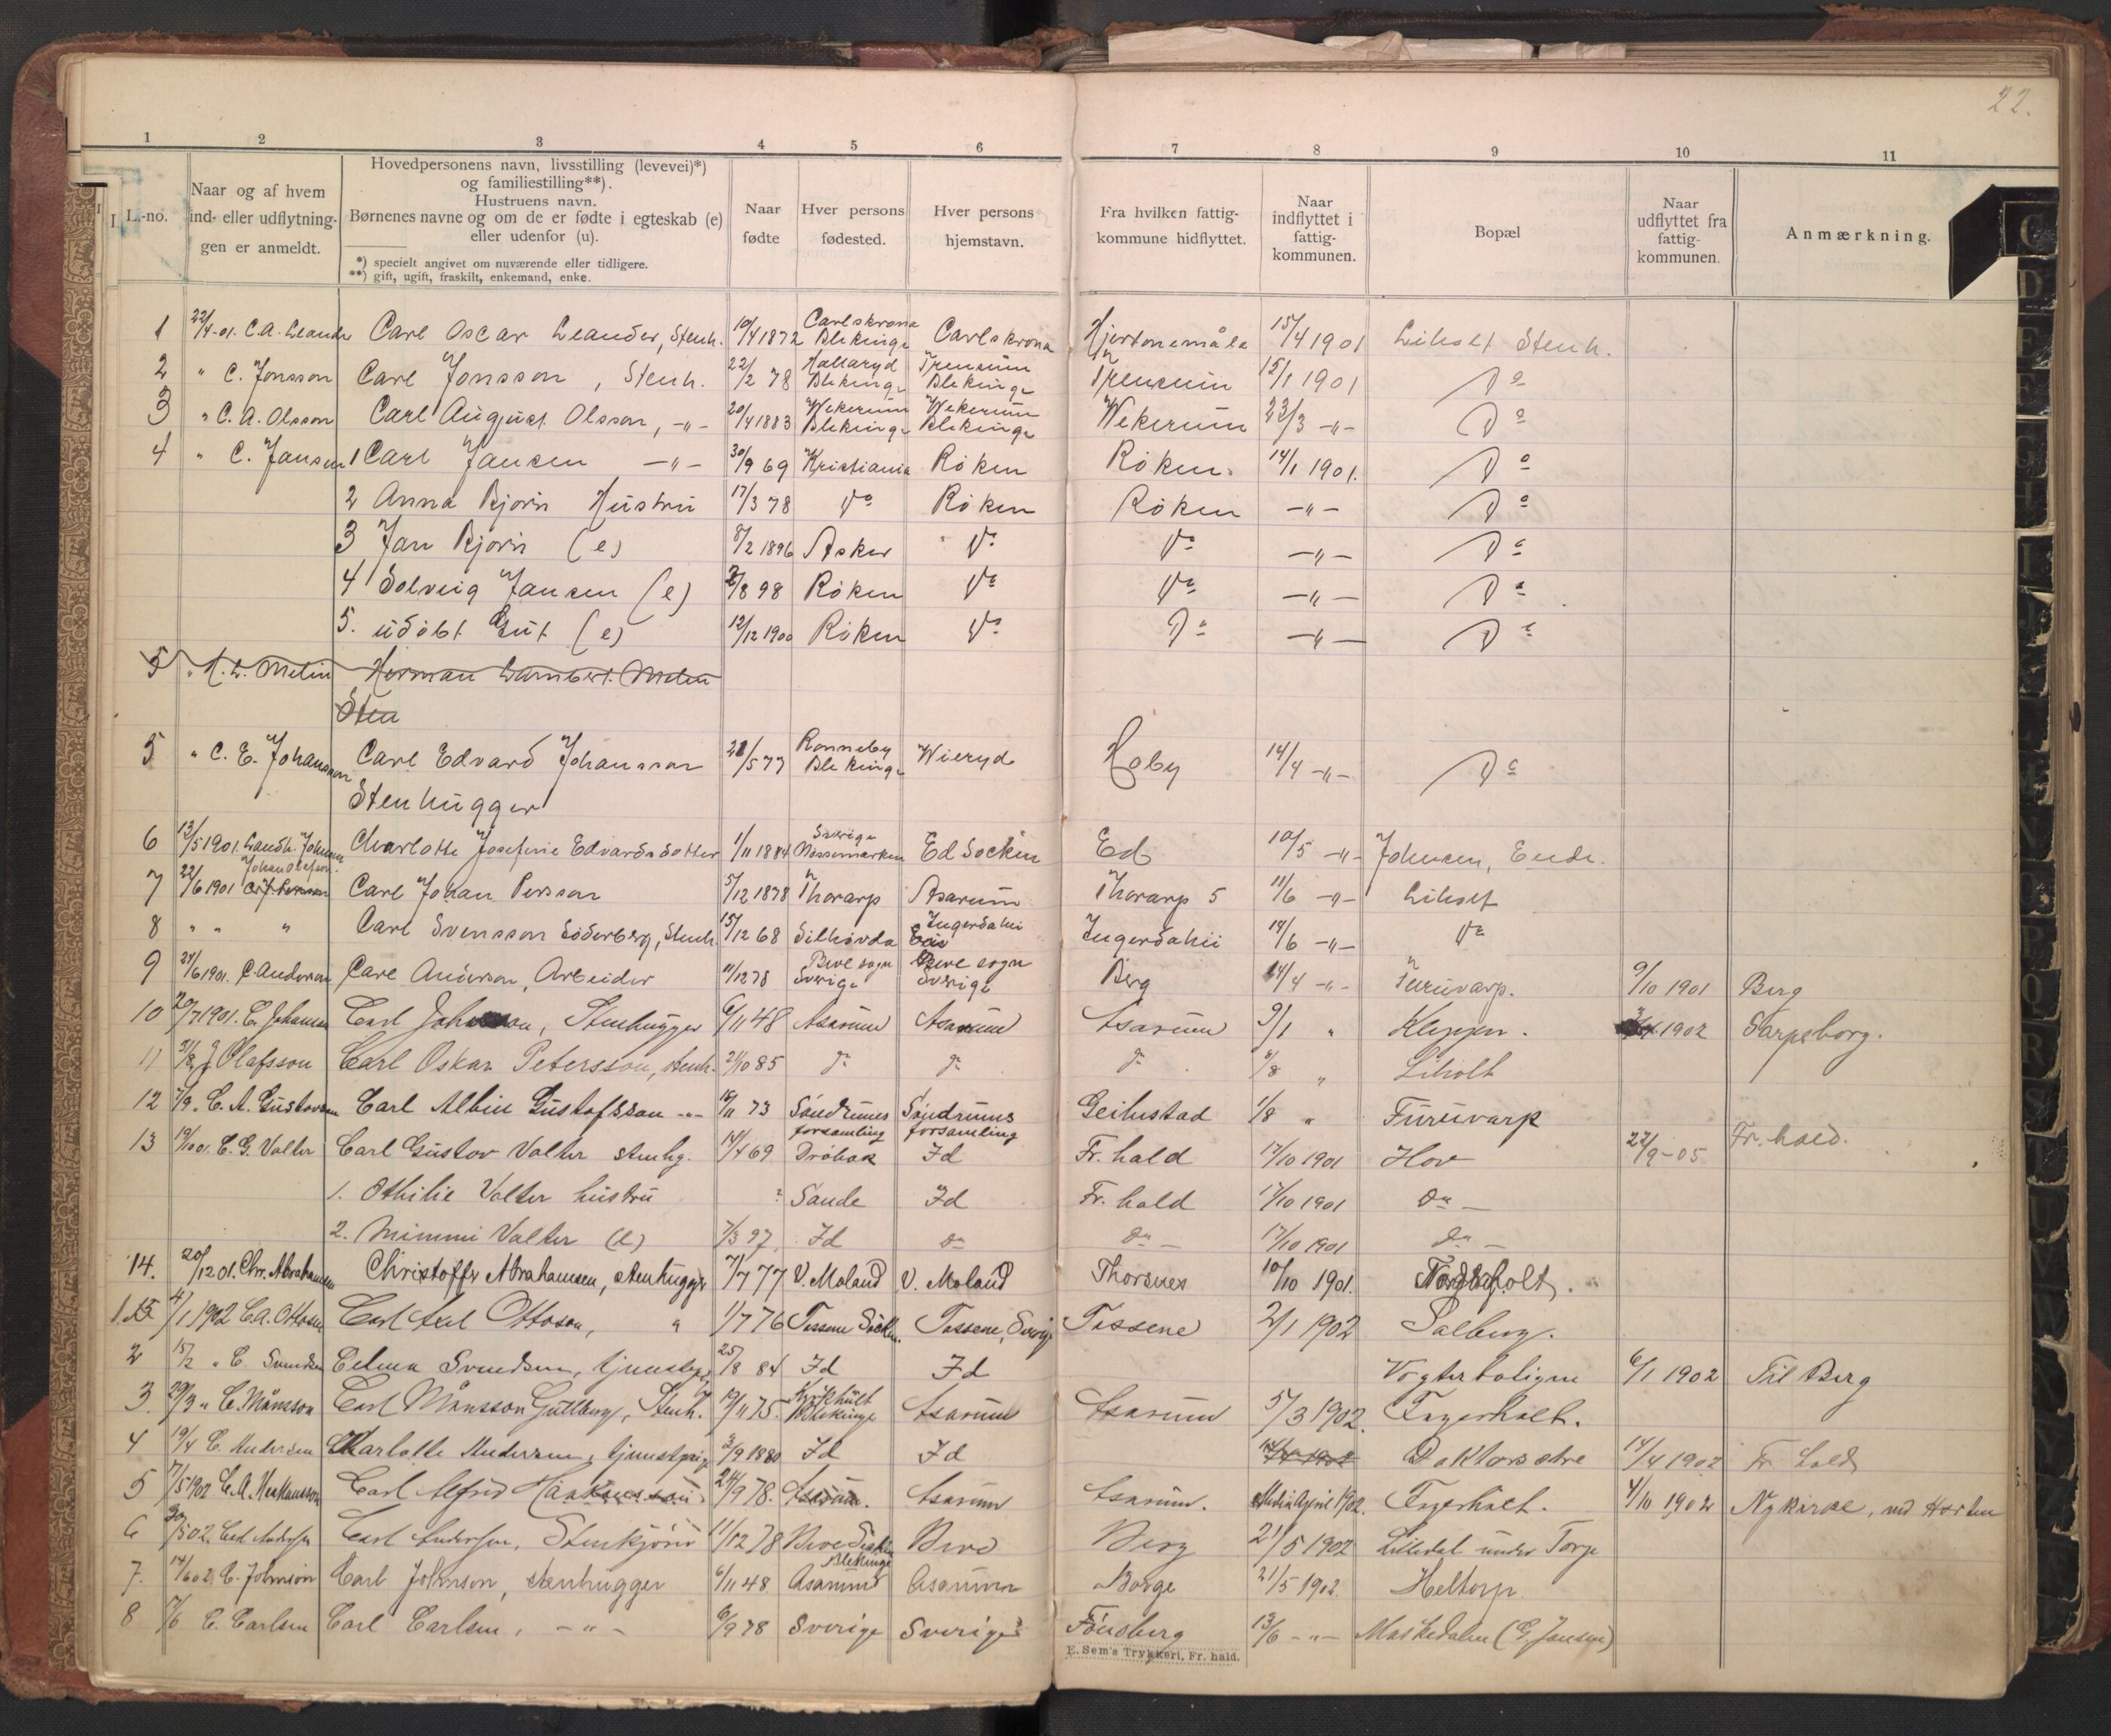 22.
1 2 3 4 5 6 7 8 9 10 11
L.-no. | Naar og af hvem ind- eller udflytningen er anmeldt. | Hovedpersonens navn, livsstilling (levevei)*) og familiestilling**). Hustruens navn. Børnenes navne og om de er fødte i egteskab (e) eller udenfor (u). *) specielt angivet om nuværende eller tidligere. **) gift, ugift, fraskilt, enkemand, enke. | Naar fødte | Hver persons fødested. | Hver persons hjemstavn. | Fra hvilken fattigkommune hidflyttet. | Naar indflyttet i fattigkommunen. | Bopæl | Naar udflyttet fra fattigkommunen. | Anmærkning.
1 22/4-01. C.A. Leander Carl Oscar Leander, Stenh. 10/4 1872 Carlskrona Blekinge Carlskrona Hjertonemåla 15/4 1901 Liholt Stenh.
2 " C. Jonsson Carl Jonsson, Stenh. 22/2 78 Hallaryd Blekinge Trensum Blekinge Trensum 15/1 1901 Do
3 " C. A. Olsson Carl August Olsson, -"- 20/4 1883 Wekerum Blekinge Wekerum Blekinge Wekerum 23/3 -"- Do
4 " C. Jansen 1 Carl Jansen -"- 30/9 69 Kristiania Röken Röken. 14/1 1901. Do
2 Anna Bjorn Hustru 17/3 78 Do Röken Röken -"- Do
3 Jan Bjorn (e) 8/2 1896 Asker Do Do -"- Do
4 Solveig Jansen (e) 2/8 98 Röken Do Do -"- Do
5. udöbt Gut (e) 12/12 1900 Röken Do Do -"- Do
5 " H. L. Melin Herman Lambert Melin
Sten
5 " C. E. Johansson Carl Edvard Johansson 21/5 77 Ronneby Blekinge Wieryd Hoby 14/4 -"- Do
Stenhugger
6 13/5 1901. Landh. Johnsen Charlotte Josefine Edvardsdotter 1/11 1884 Sverige Nössemarken Ed Socken Ed 10/5 -"- Johnsen, Ende.
7 22/6 1901 Johan Olafson. Carl Johan Persson 5/12 1878 Thorarp Asarum Thorarp 5 11/6 -"- Liholt
8 " " " Carl Svensson Söderberg, Stenh. 15/12 68 Silhövda Ingerdahii Ingerdahii 14/6 -"- Do
9 24/6 1901. C. Anderson Carl Anderson, Arbeider 11/12 78 Bove sogn Sverige Bove sogn Sverige Berg 14/4 -"- Furuvarp. 9/10 1901 Berg
10 20/7 1901. C. Johansen Carl Johnson, Stenhugger 6/11 48 Asarum Asarum Asarum 9/1 " Kleppen. 1902 Sarpsborg.
11 31/8. J. Olafsson Carl Oskar Petersson, stenh. 21/10 85 Do Do Do 6/8 " Liholt
12 7/9. C. A. Gustavsen Carl Albin Gustafsson -"- 16/11 73 Söndrums forsamling Söndrums forsamling Geilustad 1/8 " Furuvarp
13 19/10 01. C. G. Valter Carl Gustav Valter stenhg. 14/4 69 Dröbak Id Fr. hald 17/10 1901 Hov 22/9-05 Fr. hald.
1. Othilie Valter hustru ? Sande Id Fr. hald 17/10 1901 Do
2. Mimmi Valter (e) 7/3 97 Id Do Do 17/10 1901 Do
14. 20/12 01. Chr. Abrahamsen Christoffer Abrahamsen, stenhugger 7/7 77 V. Moland V. Moland Thorsnes 10/10 1901.
1. 4/1 1902 C.A. Ottosen Carl Axel Ottosen, " 1/7 76 Tossene Socken. Tossene, Sverige Tossene 2/1 1902 Salberg.
2 15/2 " C. Svendsen Celma Svendsen, tjenestepige 25/8 84 Id Id Vogterboligen 6/1 1902 Til Berg
3. 29/3 " C. Månsson Carl Månsson Gullberg, Stenh. 19/11 75. Kyrkhult Blekinge Asarum Asarum 5/3 1902. Fagerholt.
4 19/4 C. Andersen Charlotte Andersen, tjenstpige 3/9 1880 Id Id Doktorsætre 14/4 1902 Fr. hald
5 7/5 1902 C. A. Haakansson Carl Alfrid Haakansson 24/9 78. Asarum. Asarum Asarum. April 1902. Fagerholt. 4/10 1902 Nykirke, ved Horten
6 30/5 02. Carl Andersen Carl Andersen, Stenkjører 11/12 78 Bove Bove Berg 21/5 1902 Lilledal under Torp
7. 14/6 02. C. Johnson Carl Johnson, stenhugger 6/11 48 Asarum Blekinge Asarum Borge 21/5 1902. Heltorp.
8 7/6 C. Carlsen Carl Carlsen, -"- 6/9 78 Sverige Sverige Tönsberg 13/6 -"- Maskedalen (G. Jansen)
E. Sem's Trykkeri, Fr. hald.